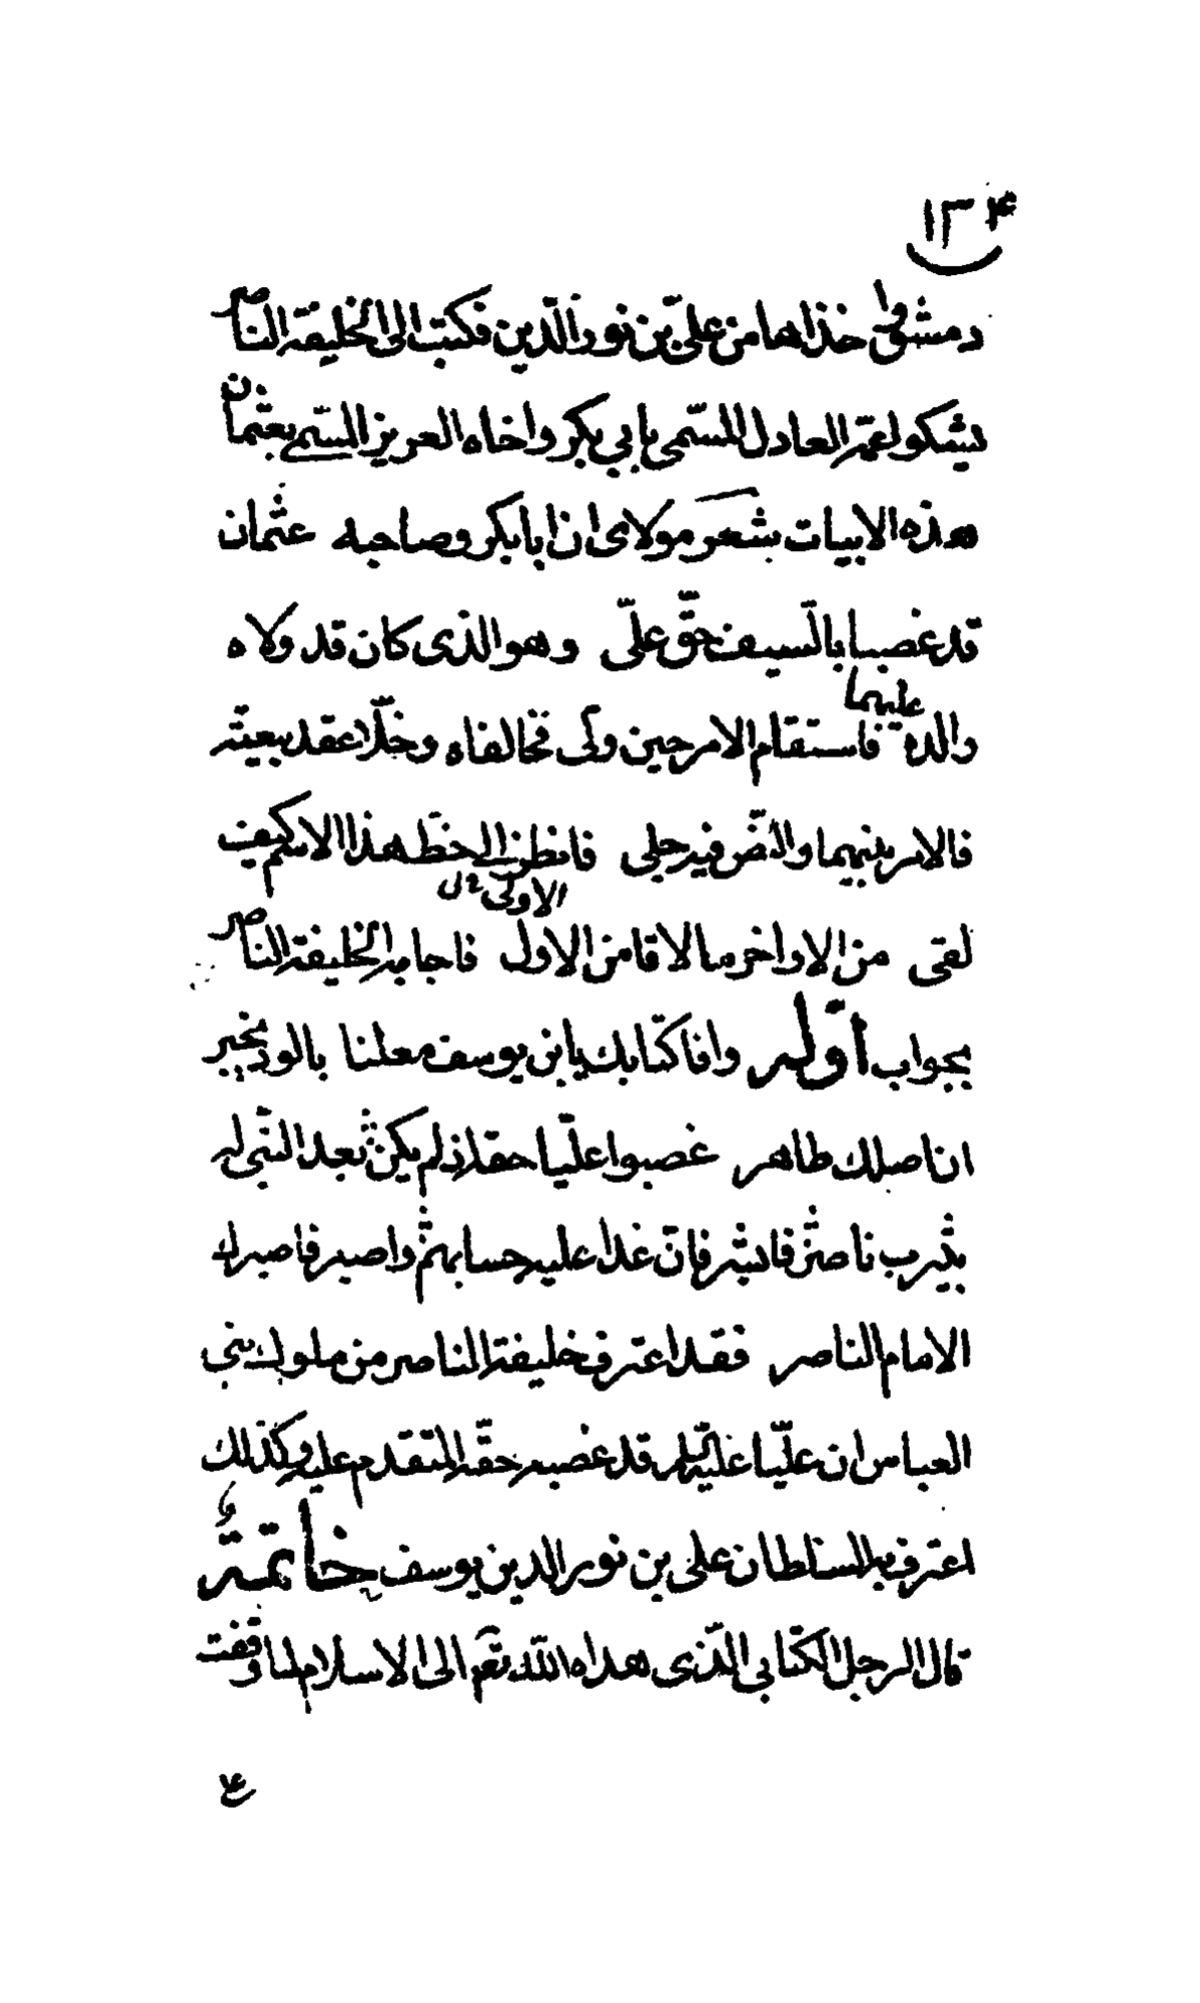 ١٣٤
دمشق اخذاها من علیّ بن نور الدّین فکتب الی الخلیفة الناصر
یشکو لعمّه العادل المسّمی بابی بکر واخاه العزیز المسّمی بعثمان
هذه الابیات شعر مولای ان ابا بکر وصاحبه عثمان
قد غصبا بالسّیف حقّ علیّ وهو الذی کان قد ولاه
والده علیهما فاستقام الامر حین ولی فخالفاه وحلّا عقد بیعته
فالامر بینهما والنّص فیه جلی فانظر الی حظ هذا الاسم کیف
لقی من الاواخر ما لاقا من الاول فاجابه الخلیفة الناصر
الاولی
بجواب اوّله وافا کتابک یابن یوسف معلنا بالود یخبر
ان اصلک طاهر غصبوا علیّا حقه اذ لم یکن بعد النّبی له
بیثرب ناصر فابشر فانّ غدا علیه حسابهم واصبر فاصبرک
الامام الناصر فقد اعترف خلیفة الناصر من ملوک بنی
العباس ان علیّا علیه السلم قد غصبه حقّه المتقدم علیه وکذلک
اعترف به السلطان علی بن نور الدین یوسف خاتمة
قال الرجل الکتابی الّذی هداه اللّه تعم الی الاسلام لما وقفت